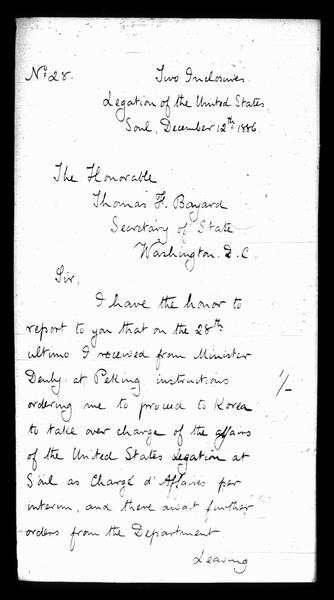 No 28. Two Inclosures.
Legation of the United States
Soul, December 12th 1886.
The Honorable
Thomas F. Bayard
Secretary of State
Washington. D.C.
Sir,
I have the honor to
report to you that on the 28th
ultimo I received from Minister
Denby at Peking instructions
ordering me to proceed to Korea 1/-
to take over charge of the affairs
of the United States Legation at
Söul as Chargé d'Affaires per
interim, and there await further
orders from the Department
Leaving